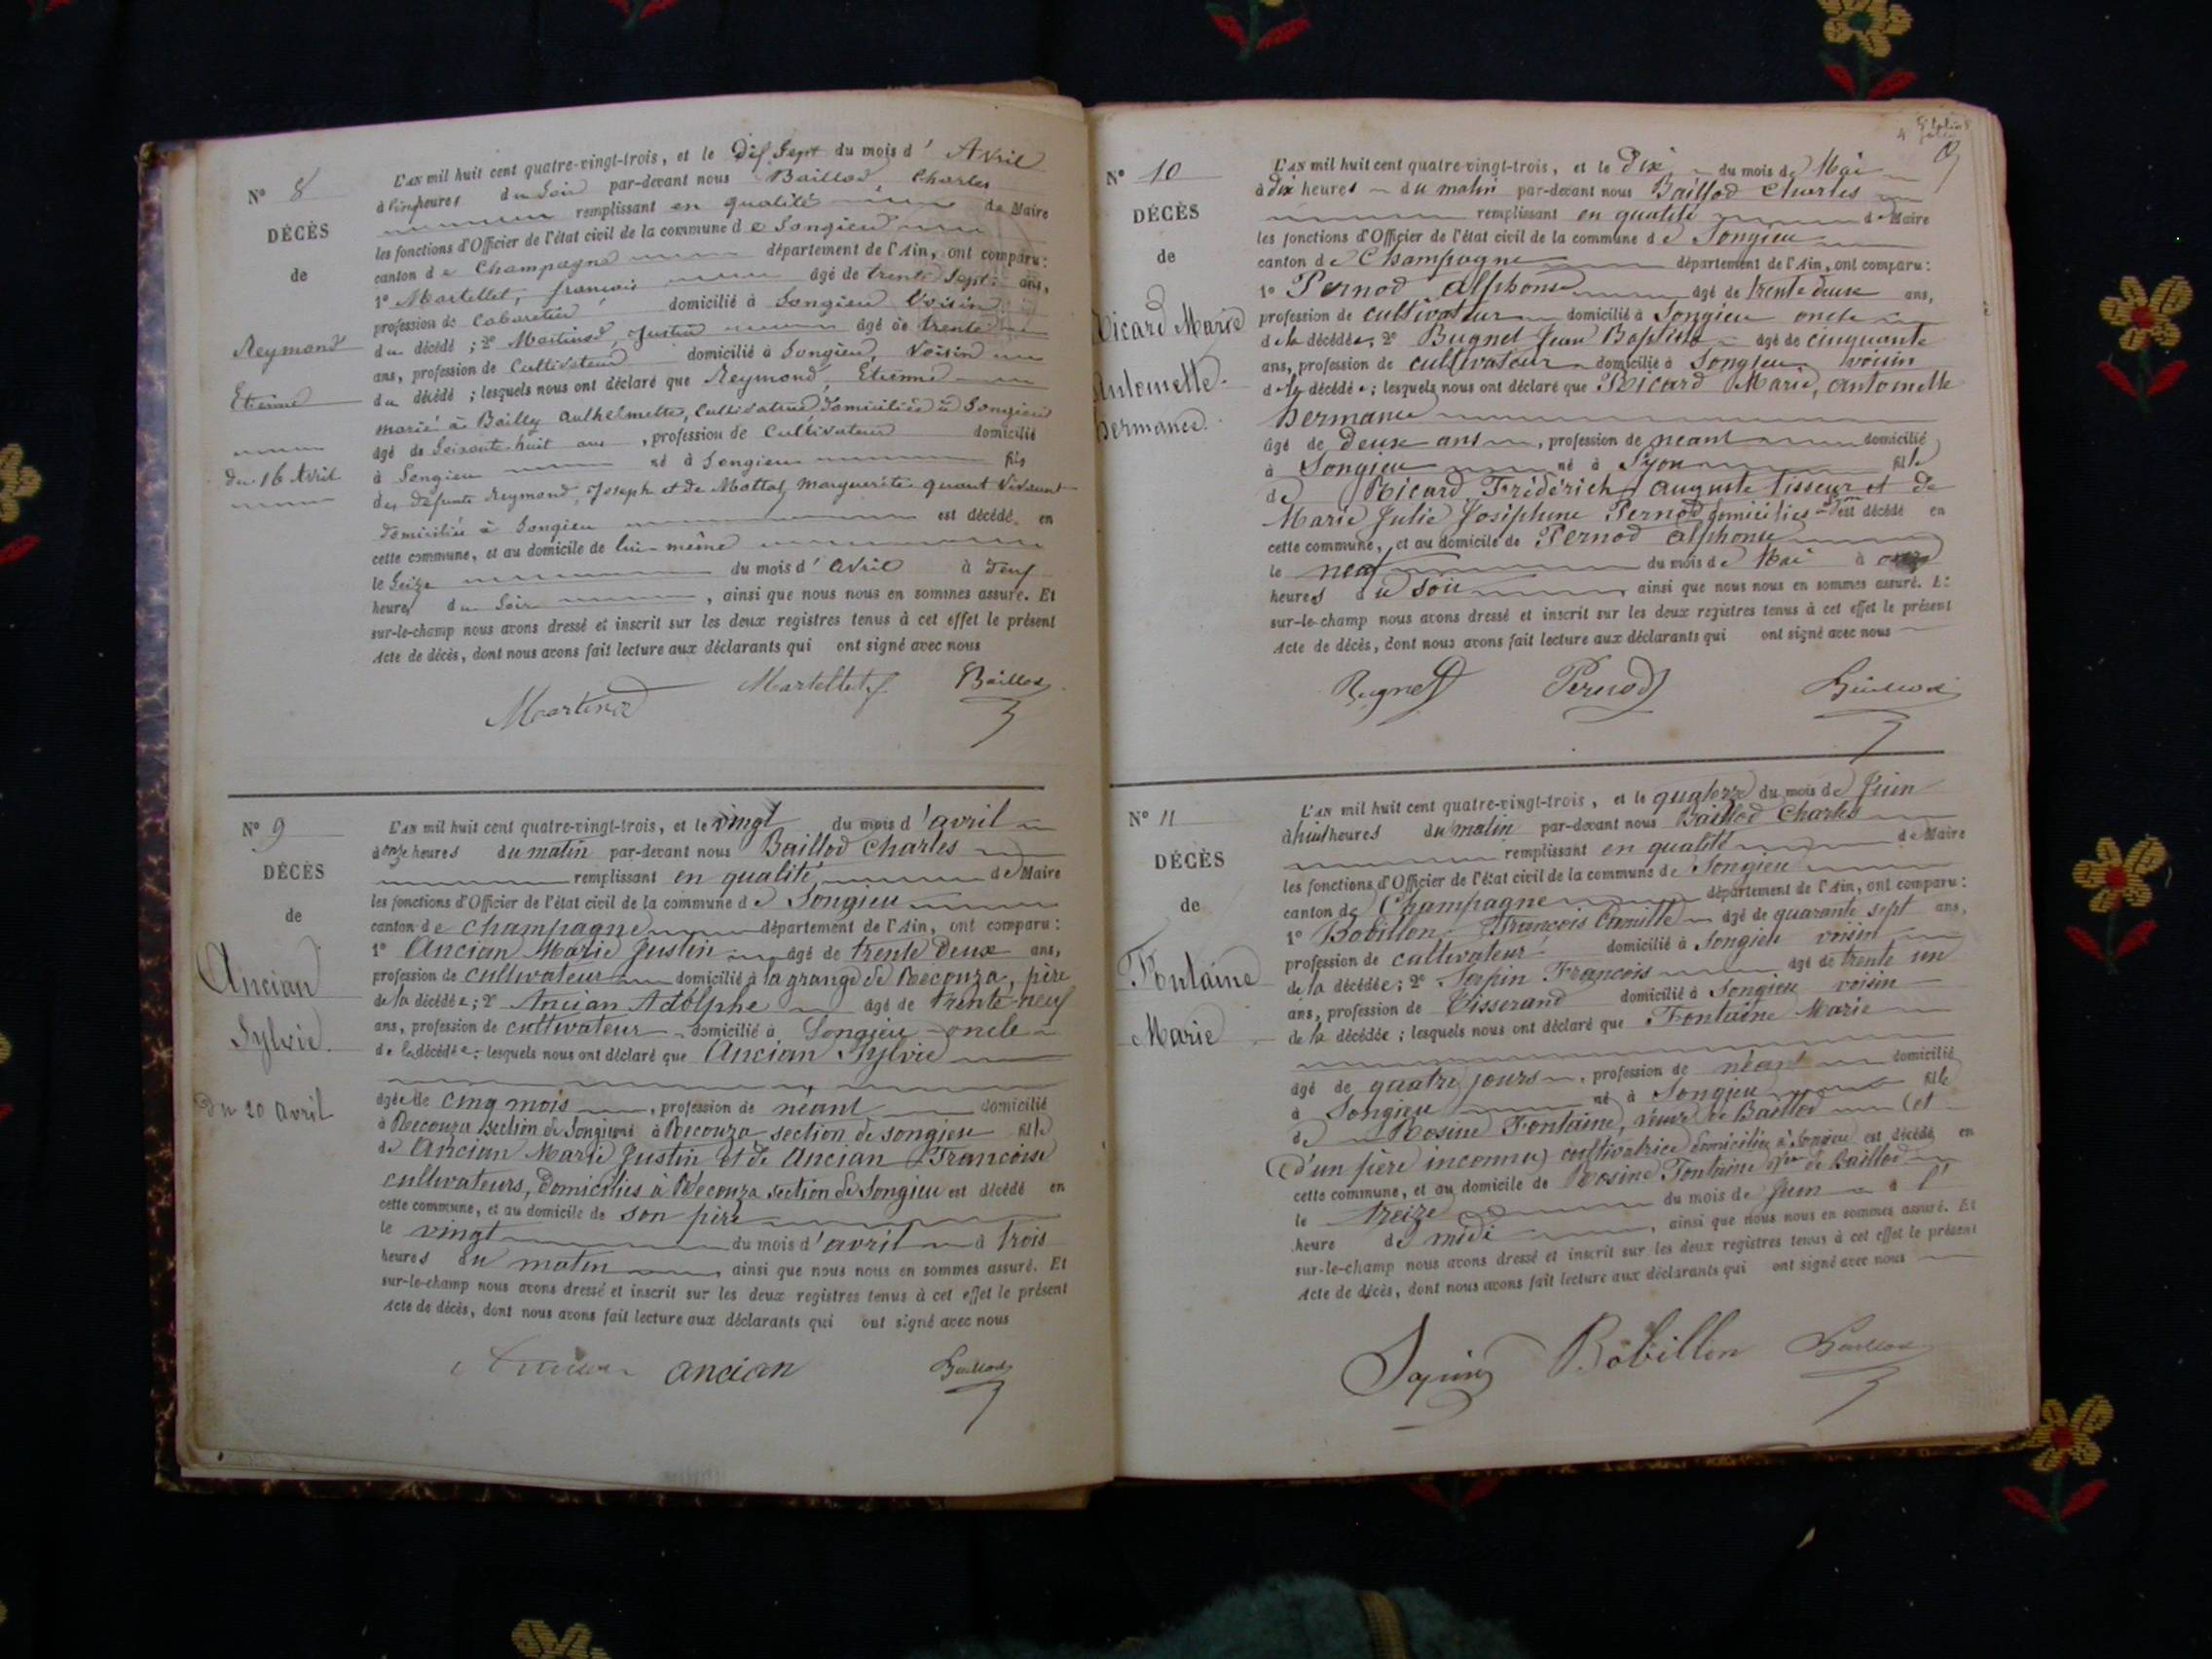 N° 8
DÉCÈS
de
Reymond
Etienne
du 16 Avril
L'AN mil huit cent quatre-vingt-trois, et le dix Sept du mois d' Avril
à cinq heures du Soir par-devant nous Baillod, Charles
remplissant en qualité de Maire
les fonctions d'Officier de l'état civil de la commune de Songieu
canton de Champagne département de l'Ain, ont comparu:
1° Martellet, françois âgé de trente Sept ans,
profession de Cabaretier domicilié à Songieu Voisin
du décédé ; 2° Martinod, Justin âgé de trente
ans, profession de Cultivateur domicilié à Songieu, Voisin
du décédé ; lesquels nous ont déclaré que Reymond, Etienne
marié à Bailly Anthelmette, Cultivatrice, domiciliée à Songieu
âgé de Soixante-huit ans, profession de Cultivateur domicilié
à Songieu né à Songieu fils
des défunts Reymond, Joseph et de Mottaz Marguerite quant Vivaient
domiciliés à Songieu est décédé en
cette commune, et au domicile de lui-même
le Seize du mois d' Avril à Neuf
heures du Soir, ainsi que nous nous en sommes assuré. Et
sur-le-champ nous avons dressé et inscrit sur les deux registres tenus à cet effet le présent
Acte de décès, dont nous avons fait lecture aux déclarants qui ont signé avec nous
Martinod Martellet f. Baillod
N° 9
DÉCÈS
de
Ancian
Sylvie.
Du 20 avril
L'AN mil huit cent quatre-vingt-trois, et le vingt du mois d'avril
à onze heures du matin par-devant nous Baillod Charles
remplissant en qualité de Maire
les fonctions d'Officier de l'état civil de la commune de Songieu
canton de Champagne département de l'Ain, ont comparu:
1° Ancian Marie Justin âgé de trente deux ans,
profession de cultivateur domicilié à la grange de Recouza, père
de la décédée ; 2° Ancian Adolphe âgé de trente-neuf
ans, profession de cultivateur domicilié à Songieu oncle
de la décédée ; lesquels nous ont déclaré que Ancian Sylvie
âgée de cinq mois, profession de néant domicilié
à Recouza section de Songieu né à Recouza section de songieu fille
de Ancian Marie Justin et de Ancian Françoise
cultivateurs, domiciliés à Recouza section de Songieu est décédé en
cette commune, et au domicile de son père
le vingt du mois d'avril à trois
heures du matin, ainsi que nous nous en sommes assuré. Et
sur-le-champ nous avons dressé et inscrit sur les deux registres tenus à cet effet le présent
Acte de décès, dont nous avons fait lecture aux déclarants qui ont signé avec nous
Ancian ancian Baillod
N° 10
DÉCÈS
de
Ricard Marie
Antoinette
hermance
L'AN mil huit cent quatre-vingt-trois, et le Dix du mois de Mai
à dix heures du matin par-devant nous Baillod Charles
remplissant en qualité de Maire
les fonctions d'Officier de l'état civil de la commune de Songieu
canton de Champagne département de l'Ain, ont comparu:
1° Pernod alphonse âgé de trente deux ans,
profession de cultivateur domicilié à Songieu oncle
de la décédée ; 2° Bugnet Jean Baptiste âgé de cinquante
ans, profession de cultivateur domicilié à Songieu voisin
de la décédée ; lesquels nous ont déclaré que Ricard Marie, antoinette
hermance
âgé de deux ans, profession de néant domicilié
à Songieu né à Lyon fille
de Ricard Frédérich auguste tisseur et de
Marie Julie Joséphine Pernod domiciliés à Lyon est décédé en
cette commune, et au domicile de Pernod alphonse
le neuf du mois de Mai à onze
heures du soir ainsi que nous nous en sommes assuré. Et
sur-le-champ nous avons dressé et inscrit sur les deux registres tenus à cet effet le présent
Acte de décès, dont nous avons fait lecture aux déclarants qui ont signé avec nous
Bugnet Pernod Baillod
N° 11
DÉCÈS
de
Fontaine
Marie
L'AN mil huit cent quatre-vingt-trois, et le quatorze du mois de Juin
à huit heures du matin par-devant nous Baillod Charles
remplissant en qualité de Maire
les fonctions d'Officier de l'état civil de la commune de Songieu
canton de Champagne département de l'Ain, ont comparu:
1° Bobillon François Camille âgé de quarante sept ans,
profession de cultivateur domicilié à Songieu voisin
de la décédée ; 2° François âgé de trente un
ans, profession de Tisserand domicilié à Songieu voisin
de la décédée ; lesquels nous ont déclaré que Fontaine Marie
âgé de quatre jours, profession de néant domicilié
à Songieu né à Songieu fille
de Rosine Fontaine, veuve de Baillod (et
d'un père inconnu) cultivatrice domiciliée à Songieu est décédé en
cette commune, et au domicile de Rosine Fontaine Vve de Baillod
le treize du mois de Juin à l'
heure de midi, ainsi que nous nous en sommes assuré. Et
sur-le-champ nous avons dressé et inscrit sur les deux registres tenus à cet effet le présent
Acte de décès, dont nous avons fait lecture aux déclarants qui ont signé avec nous
Bobillon Baillod